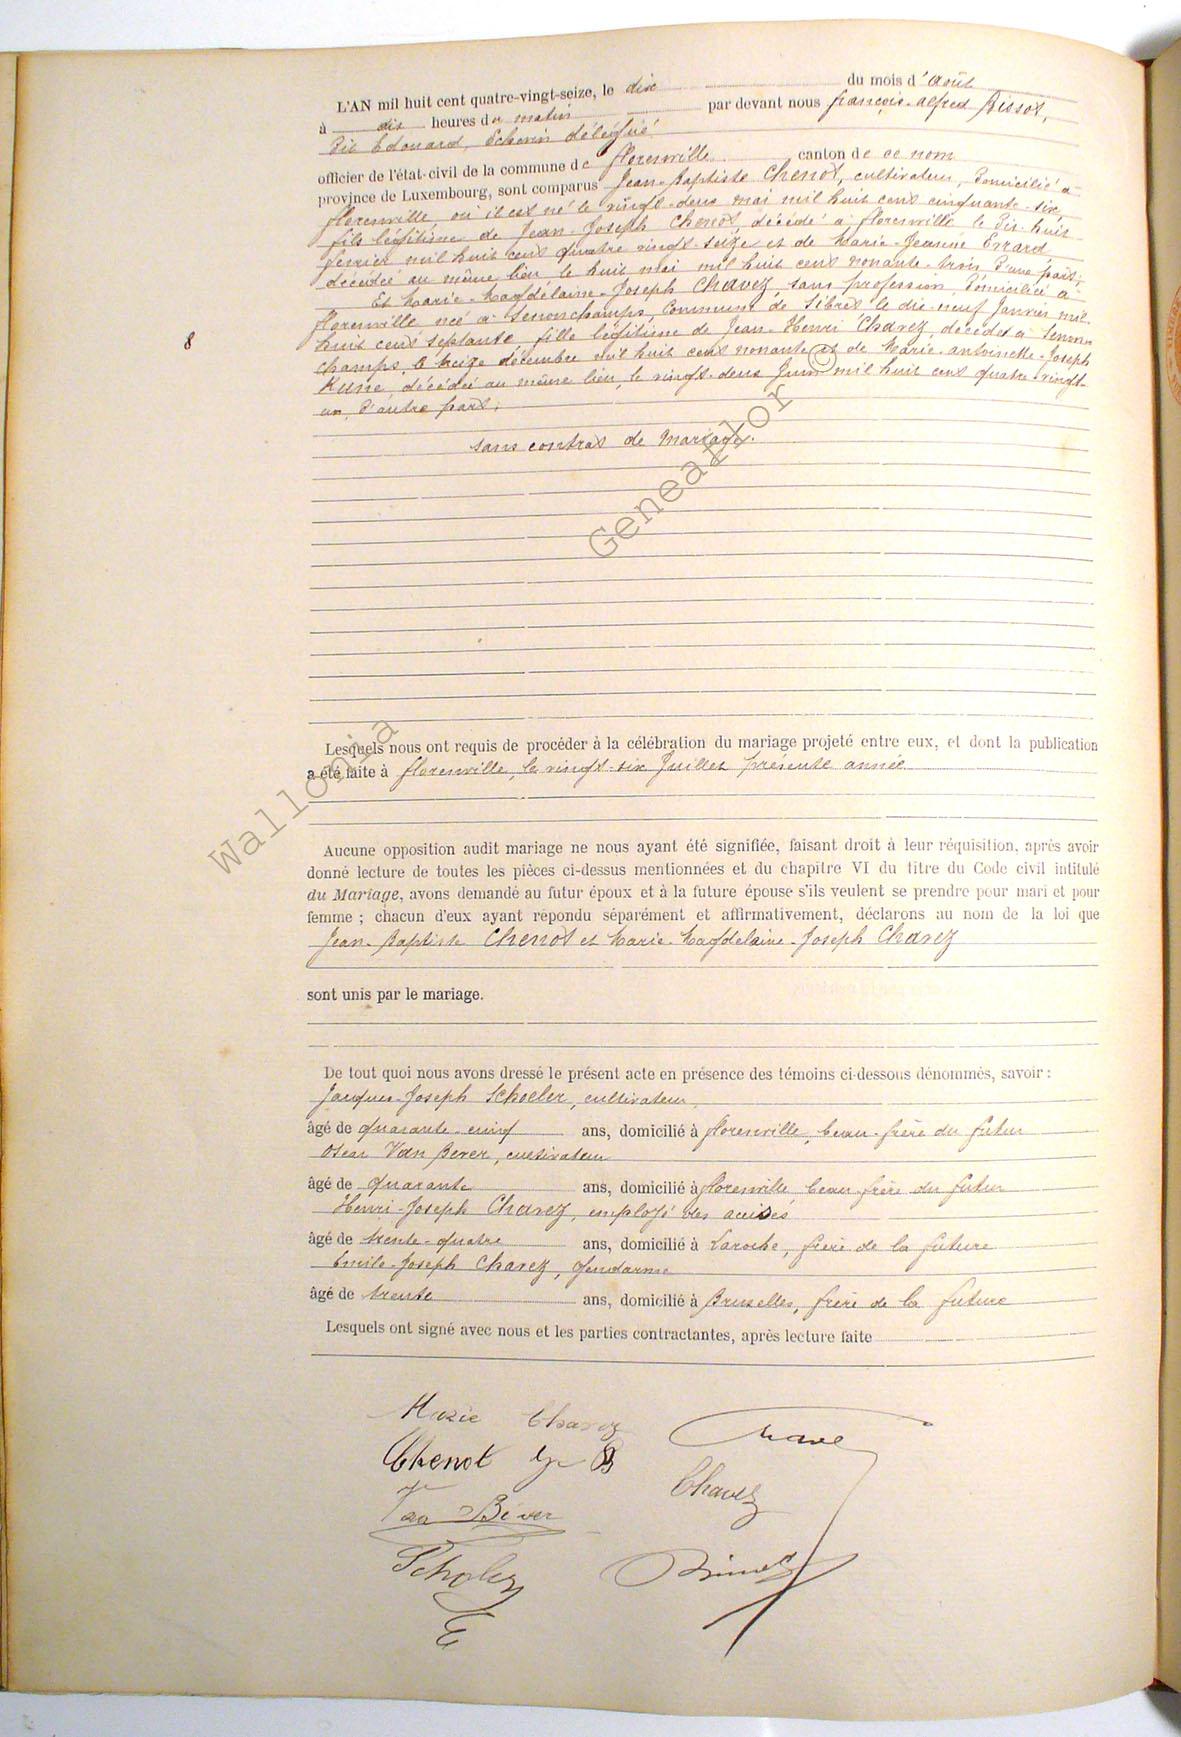 L'AN mil huit cent quatre-vingt-seize, le dix du mois d'Août
à dix heures du matin par devant nous françois-alfred Bissot,
dit Edouard, Echevin délégué
officier de l'état-civil de la commune de florenville canton de ce nom
province de Luxembourg, sont comparus Jean-Baptiste Chenot, cultivateur, domicilié à
florenville, où il est né le vingt-deux mai mil huit cent cinquante-six,
fils légitime de Jean-Joseph Chenot, décédé à florenville le dix-huit
fevrier mil huit cent quatre vingt-seize et de Marie-Jeanne Errard
décédée au même lieu le huit mai mil huit cent nonante-trois, d'une part;
Et Marie-Magdelaine-Joseph Chavez, sans profession, domiciliée à
florenville, née à Senonchamps, Commune de Sibret le dix-neuf Janvier mil-
huit cent septante, fille légitime de Jean-Henri Chavez, décédé à Senon-
champs, le treize décembre mil huit cent nonante et de Marie-antoinette-Joseph
décédée au même lieu, le vingt-deux Juin mil huit cent quatre-vingt-
un, d'autre part;
8
sans contrat de Mariage.
Lesquels nous ont requis de procéder à la célébration du mariage projeté entre eux, et dont la publication
a été faite à florenville, le vingt-six Juillet présente année
Aucune opposition audit mariage ne nous ayant été signifiée, faisant droit à leur réquisition, après avoir
donné lecture de toutes les pièces ci-dessus mentionnées et du chapitre VI du titre du Code civil intitulé
du Mariage, avons demandé au futur époux et à la future épouse s'ils veulent se prendre pour mari et pour
femme ; chacun d'eux ayant répondu séparément et affirmativement, déclarons au nom de la loi que
Jean-Baptiste Chenot et Marie-Magdelaine-Joseph Chavez
sont unis par le mariage.
De tout quoi nous avons dressé le présent acte en présence des témoins ci-dessous dénommés, savoir :
Jacques-Joseph Scholer, cultivateur,
âgé de quarante-cinq ans, domicilié à florenville, beau-frère du futur
Oscar Van Bever, cultivateur
âgé de quarante ans, domicilié à florenville beau-frère du futur
Henri-Joseph Chavez, employé des accises
âgé de trente-quatre ans, domicilié à Laroche, frère de la future
Emile-Joseph Chavez, gendarme
âgé de trente ans, domicilié à Bruxelles, frère de la future
Lesquels ont signé avec nous et les parties contractantes, après lecture faite
Marie Chavez
Chavez
Chenot J B
Chavez
Van Bever
Scholer
Wallonia Geneaflor ©